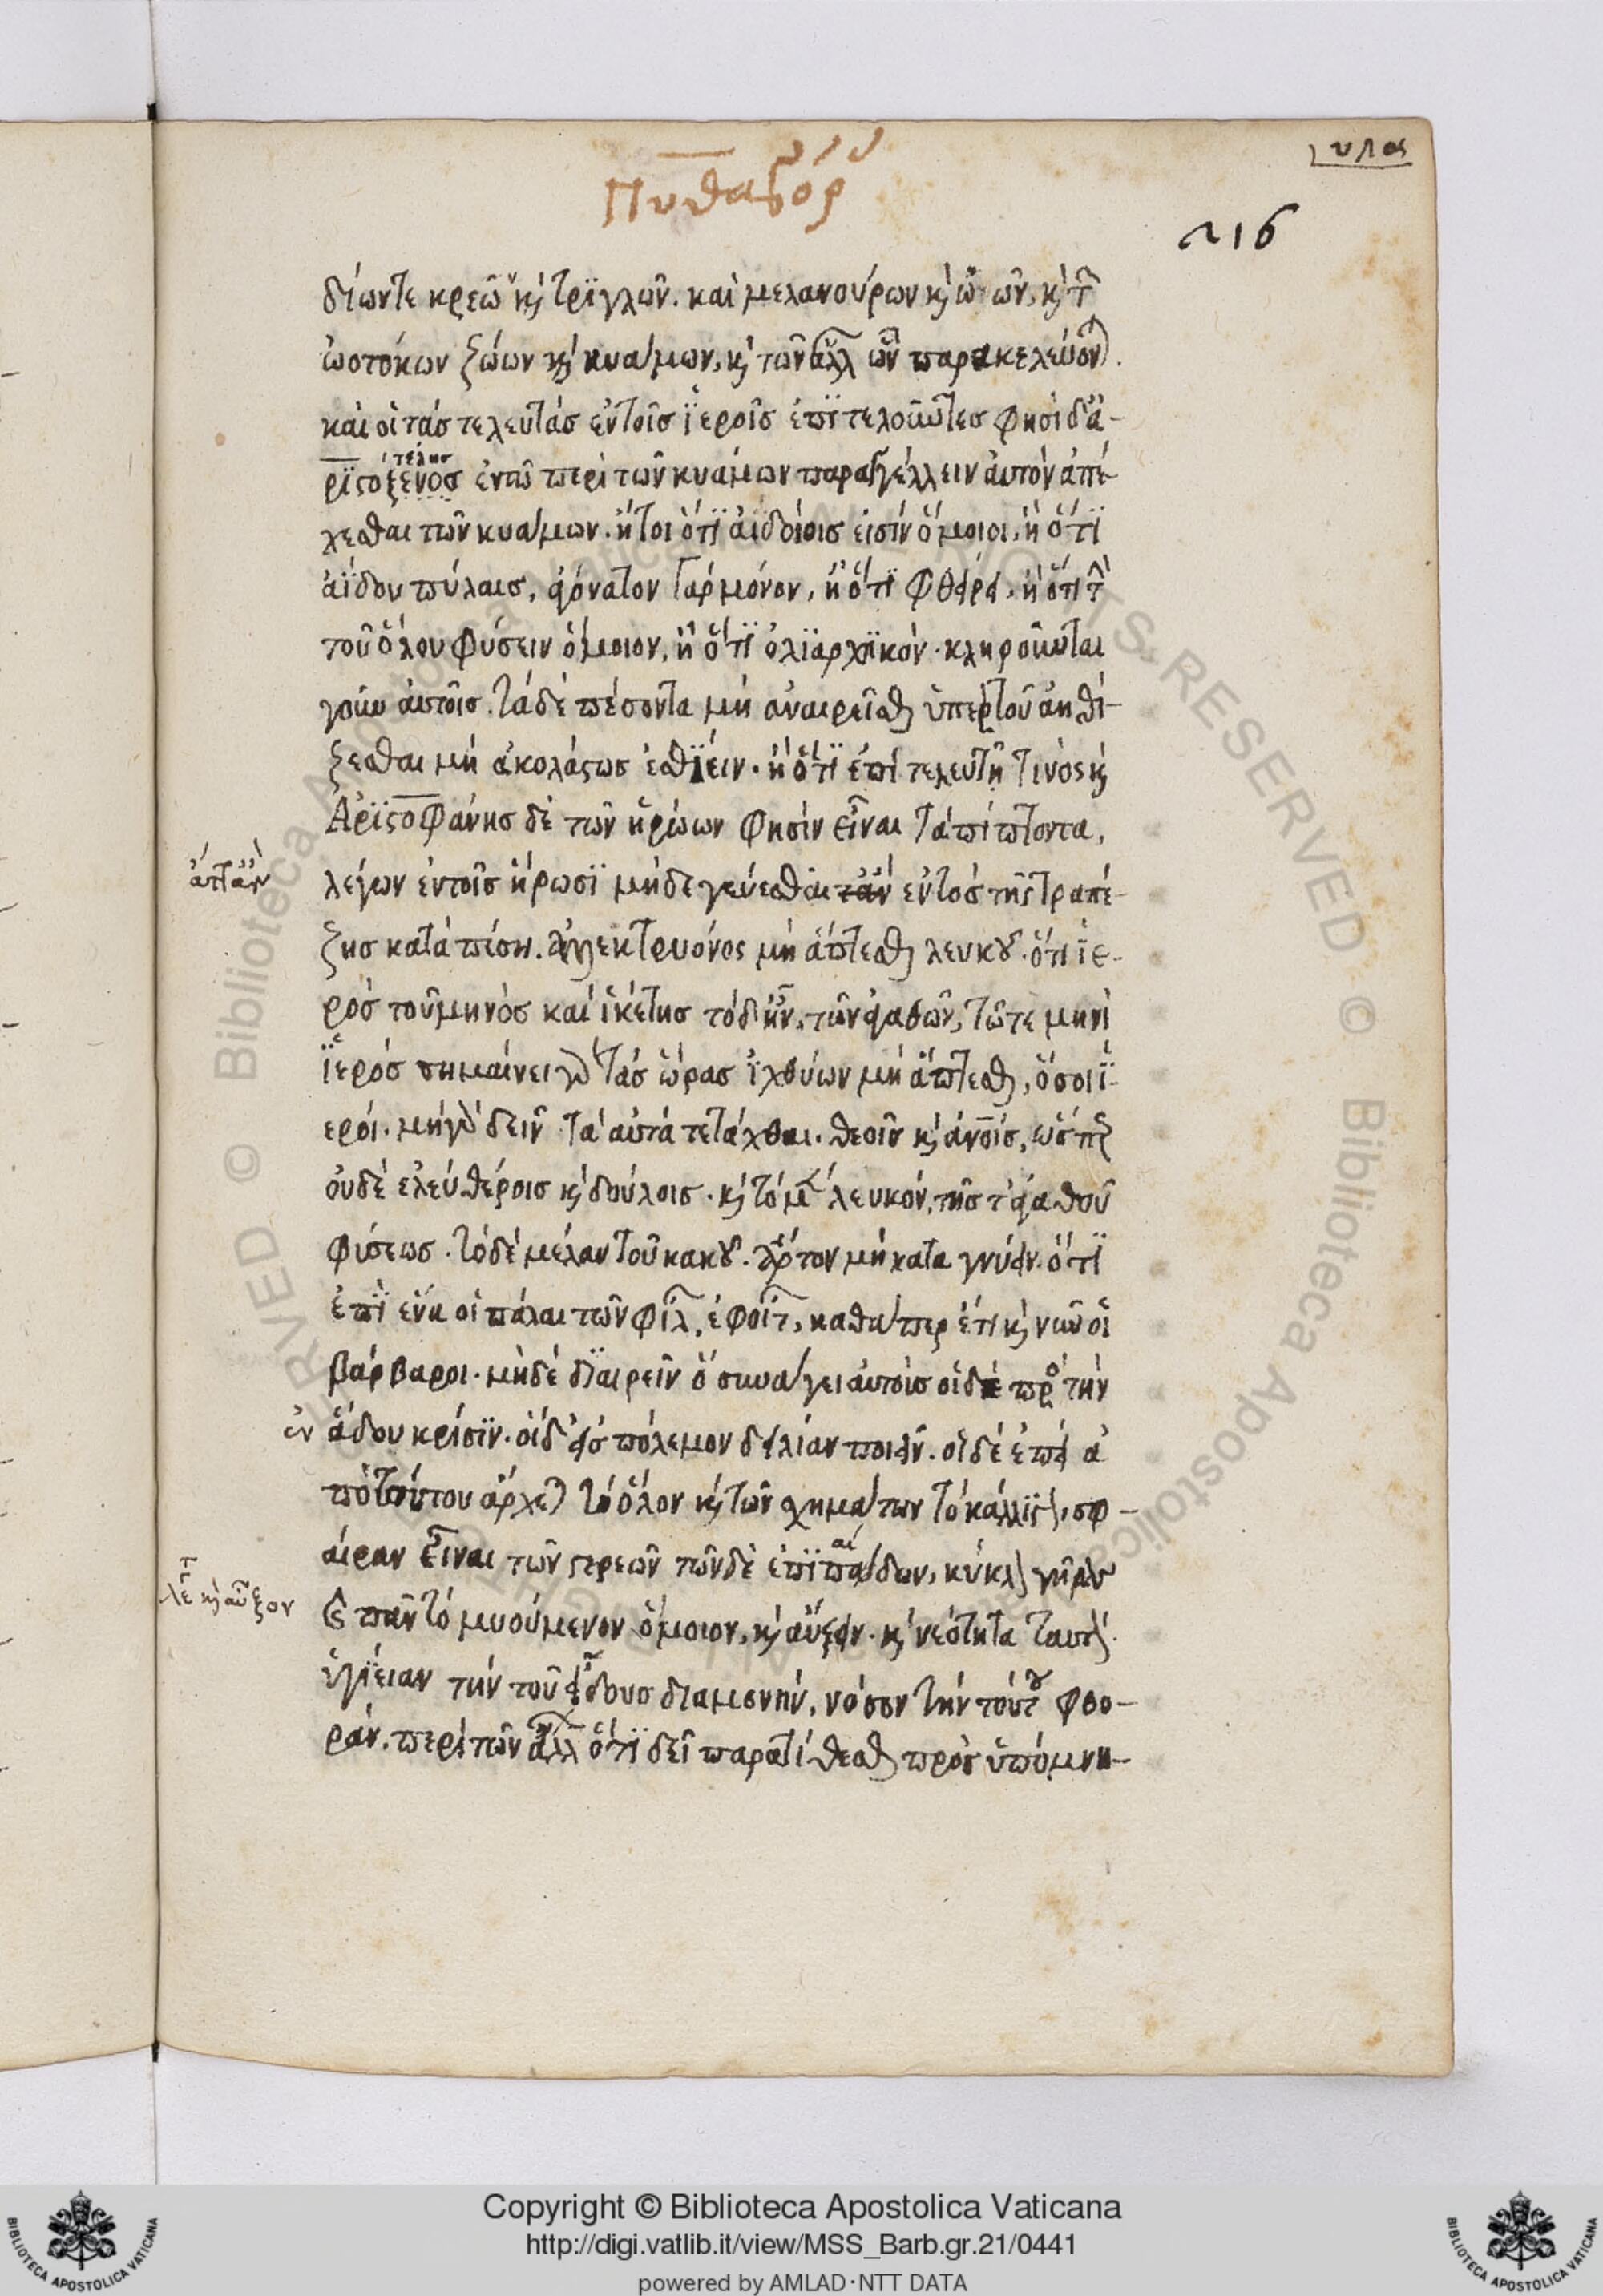 Πυθαγόρου
υλας
216
δίων τε κρεῶν κὶ τρϊγλῶν. καὶ μελανούρων κὶ ὠῶν, κὶ τῶν
ὠοτόκων ζώων κὶ κυάμων, κὶ τῶν ἄλλων ὧν παρακελεύονται.
καὶ οἱ τὰς τελευτὰσ ἐν τοῖσ ἱεροῖσ ἐπϊτελοῦντεσ φησὶ δ' ἀ-
τέλησ
ρϊςόξενοσ ἐν τῶ περὶ τῶν κυάμων παραγγέλλειν αὐτὸν ἀπέ-
χεσθαι τῶν κυάμων. ἤτοι ὅτϊ αἰδοίοισ εἰσὶν ὅμοιοι, ἢ ὅτϊ
ἀΐδου πύλαισ, ἀγόνατον γὰρ μόνον, ἢ ὅτϊ φθείρει, ἢ ὅτι τῆ
τοῦ ὅλου φύσειν ὅμοιον, ἢ ὅτϊ ὀλϊαρχϊκόν. κληροῦνται
γοῦν αὐτοῖσ. τὰ δὲ πέσοντα μὴ ἀναιρεῖσθαι ὑπὲρ τοῦ ἀηθί-
ζεσθαι μὴ ἀκολάςωσ ἐσθΐειν. ἢ ὅτϊ ἐπὶ τελευτῆ τινὸς κὶ
Ἀρϊςοφάνησ δὲ τῶν ἡρώων φησὶν εἶναι τὰ πίπτοντα,
ἅττ' ἂν
λέγων ἐν τοῖσ ἥρωσϊ μὴδε γεύεσθαι τἀν ἐντὸσ τῆς τραπέ-
ζησ καταπέση. ἀλεκτρυόνος μὴ ἅπτεσθαι λευκοῦ. ὅτι ἱε-
ρὸσ τοῦ μηνὸσ καὶ ἱκέτησ τὸ δ' ἦν, τῶν ἀγαθῶν, τῶ τε μηνὶ
ϊερόσ σημαίνει γὰρ τὰσ ὥρασ ἰχθύων μὴ ἅπτεσθαι, ὅσοι ϊ-
εροί. μὴ γὰρ δεῖν τὰ αὐτὰ τετάχθαι. θεοῖσ κὶ ἀνοίσ, ὥσπερ
οὐδὲ ἐλευθέροισ κὶ δούλοισ. κὶ τὸ μὲν λευκόν, τῆσ τἀγαθοῦ
φύσεωσ. τὸ δὲ μέλαν τοῦ κακοῦ. ἄρτον μὴ καταγνύειν. ὅτϊ
ἐπΐ ἕνα οἱ πάλαι τῶν φίλ, ἐφοίτ, καθάπερ ἔτι κὶ νῦν οἱ
βάρβαροι. μὴδὲ δϊαιρεῖν ὃ συνάγει αὐτοὺσ οἱ δὲ πρὸ τὴν
ἐν
ἅδου κρίσϊν. οἱ δ' εἰσ πόλεμον δειλίαν ποιεῖν. οἱ δὲ ἐπεὶ ἀ
πὸ τούτου ἄρχεται τὸ ὅλον κὶ τῶν σχημάτων τὸ κάλλϊςον, σφ-
αῖραν εἶναι τῶν ςερεῶν τῶν δὲ ἐπϊπαίδων, κύκλον γῆρας
λετ κὶ αὖξον
κὶ πᾶν τὸ μυούμενον ὅμοιον, κὶ αὔξειν. κὶ νεότητα ταυτόν.
ὑγΐειαν τὴν τοῦ εἴδουσ διαμονήν, νόσον τὴν τούτου φθο-
ράν. περὶ τῶν ἁλλ ὅτϊ δεῖ παρατίθεσθαι πρὸσ ὑπόμνη-
Copyright © Biblioteca Apostolica Vaticana
http://digi.vatlib.it/view/MSS_Barb.gr.21/0441
powered by AMLAD·NTT DATA